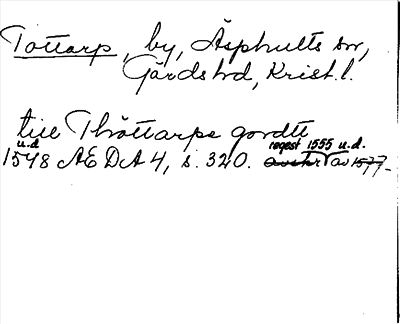 Tottarp, by, Äsphults sn,
Gärds hd, Krist. l.
till Thöttarps gordtt
u.d
regest 1555 u.d.
1548 AEDA 4, s. 320. avskr av 1577